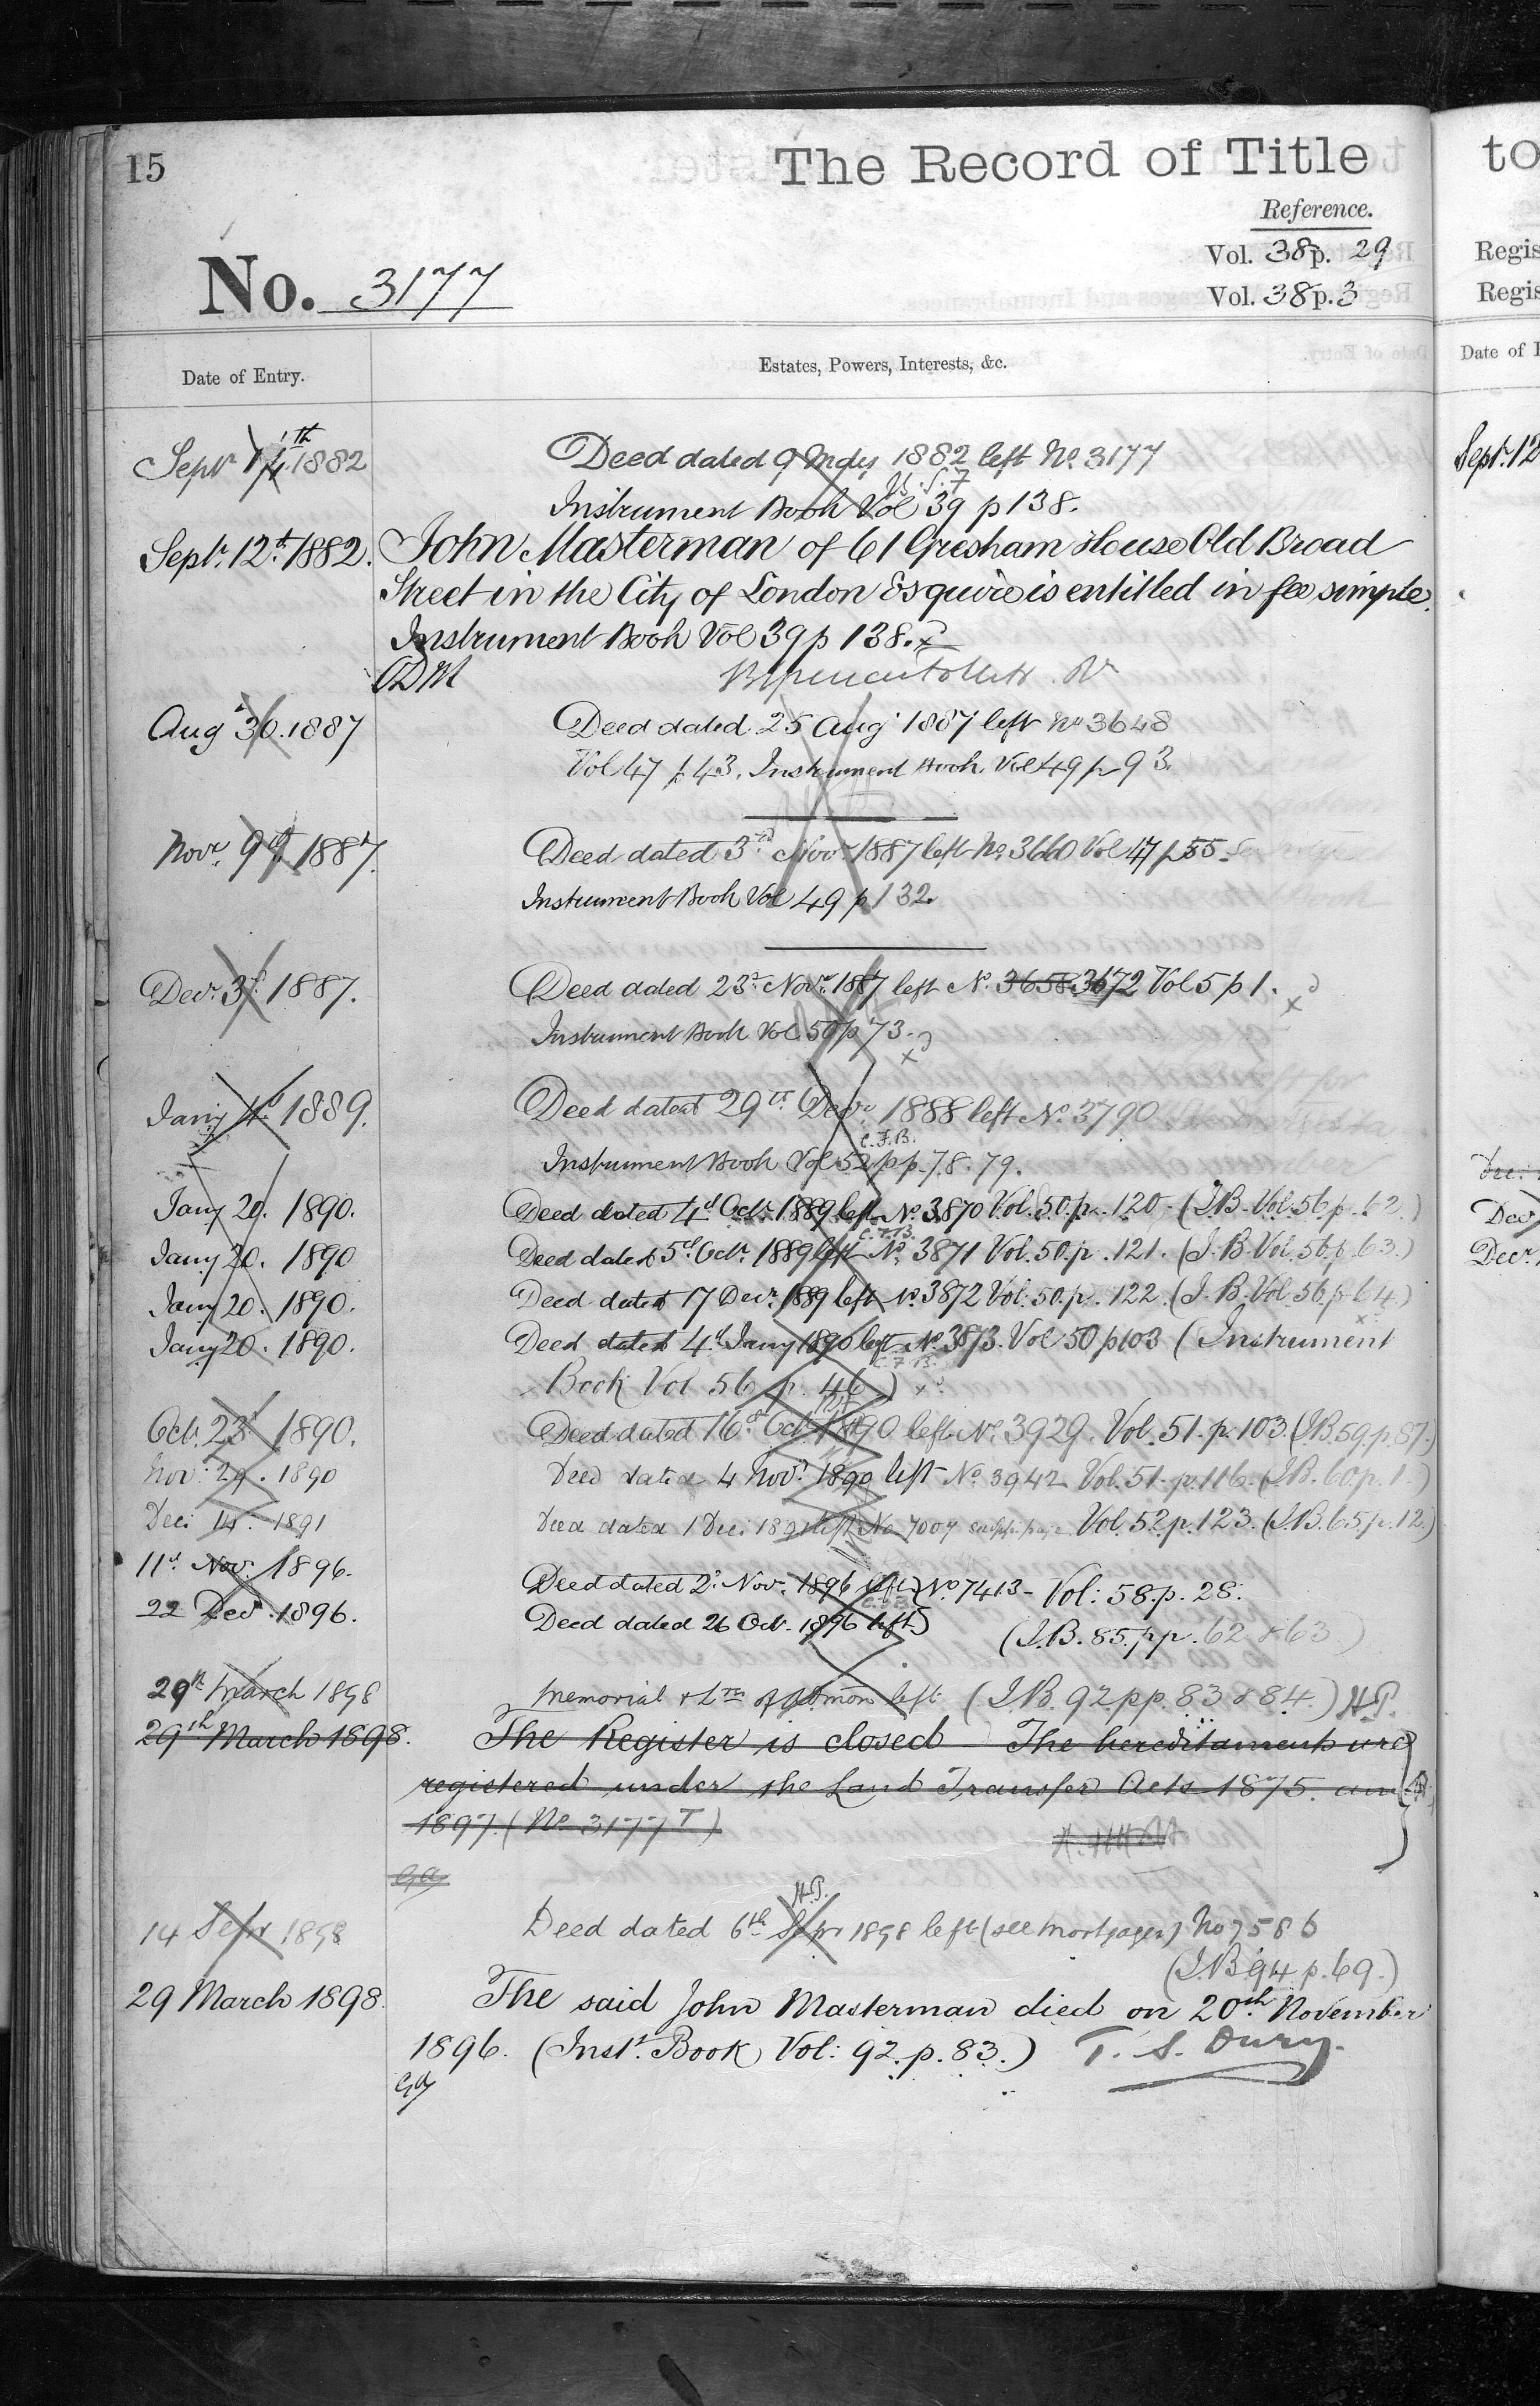 15
The Record of Title
to
Reference.
Vol. 38 p. 29
Vol. 38 p. 3
Regis
Regis
No. 3177
Date of Entry.
Estates, Powers, Interests, &c.
Date of
Sept 1882
Deed dated 9 May 1882 left No. 3177
Instrument Book Vol 39 p 138.
Sept. 12th 1882. John Masterman of 61 Gresham House Old Broad
Sept. 12
Street in the City of London Esquire is entitled in fee simple.
Instrument Book Vol 39 p 138.
Aug 30. 1887 Deed dated 25 Aug 1887 left No 3648
Vol 47 p 43. Instrument Book Vol 49 p 93.
Novr. 9th 1887. Deed dated 3rd Novr 1887 left No. 3660 Vol 47 p 55.
Instrument Book Vol 49 p 132.
Decr. 3d. 1887. Deed dated 23d Novr. 1887 left No. 3658 3672 Vol 5 p 1.
Instrument Book Vol. 50 p 73.
Jany 1889. Deed dated 29th Decr. 1888 left No. 3790
C.F.B.
Instrument Book Vol 52 pp. 78. 79.
Jany 20. 1890. Deed dated 4d Octr. 1889 left No. 3870 Vol. 50. p. 120 - (I.B. Vol. 56 p. 62.)
Jany 20. 1890 Deed dated 5d Octr. 1889 left No. 3871 Vol. 50. p. 121. (I.B. Vol. 56 p. 63.)
Jany 20. 1890. Deed dated 17 Decr. 1889 left No. 3872 Vol. 50. p. 122. (I.B. Vol. 56 p 64)
Jany 20. 1890. Deed dated 4d Jany 1890 left No. 3873. Vol 50 p 103 (Instrument
Book Vol 56 p. 46)
Octr. 23d 1890. Deed dated 16d Octr. 1890 left No. 3929. Vol. 51. p. 103. (I.B. 59. p. 87.)
Nov: 29. 1890 Deed dated 4 Novr. 1890 left No. 3942 Vol. 51. p. 116. (I.B. 60. p. 1.)
Dec: 14. 1891 Deed dated 1 Dec: 1891 left No. 7007 Vol. 52 p. 123. (I.B. 65. p. 12.)
11d Nov. 1896. Deed dated 2d Nov. 1896 left) No. 7413 - Vol: 58. p. 28.
22 Decr. 1896. Deed dated 26 Oct. 1896 left) (I.B. 85. pp. 62 & 63)
29th March 1898 Memorial & Ltrs of admon left (I.B. 92 pp. 83 & 84.) H.P.
29th March 1898. The Register is closed - The hereditaments are
registered under the Land Transfer Acts 1875. and
1897. (No 3177 T)
H.P.
14 Sepr 1898 Deed dated 6th Sepr 1898 left (see mortgages) No 7586
(I.B. 94. p. 69.)
29 March 1898. The said John Masterman died on 20th November
1896. (Inst. Book Vol: 92. p. 83.) T. S. Dury.